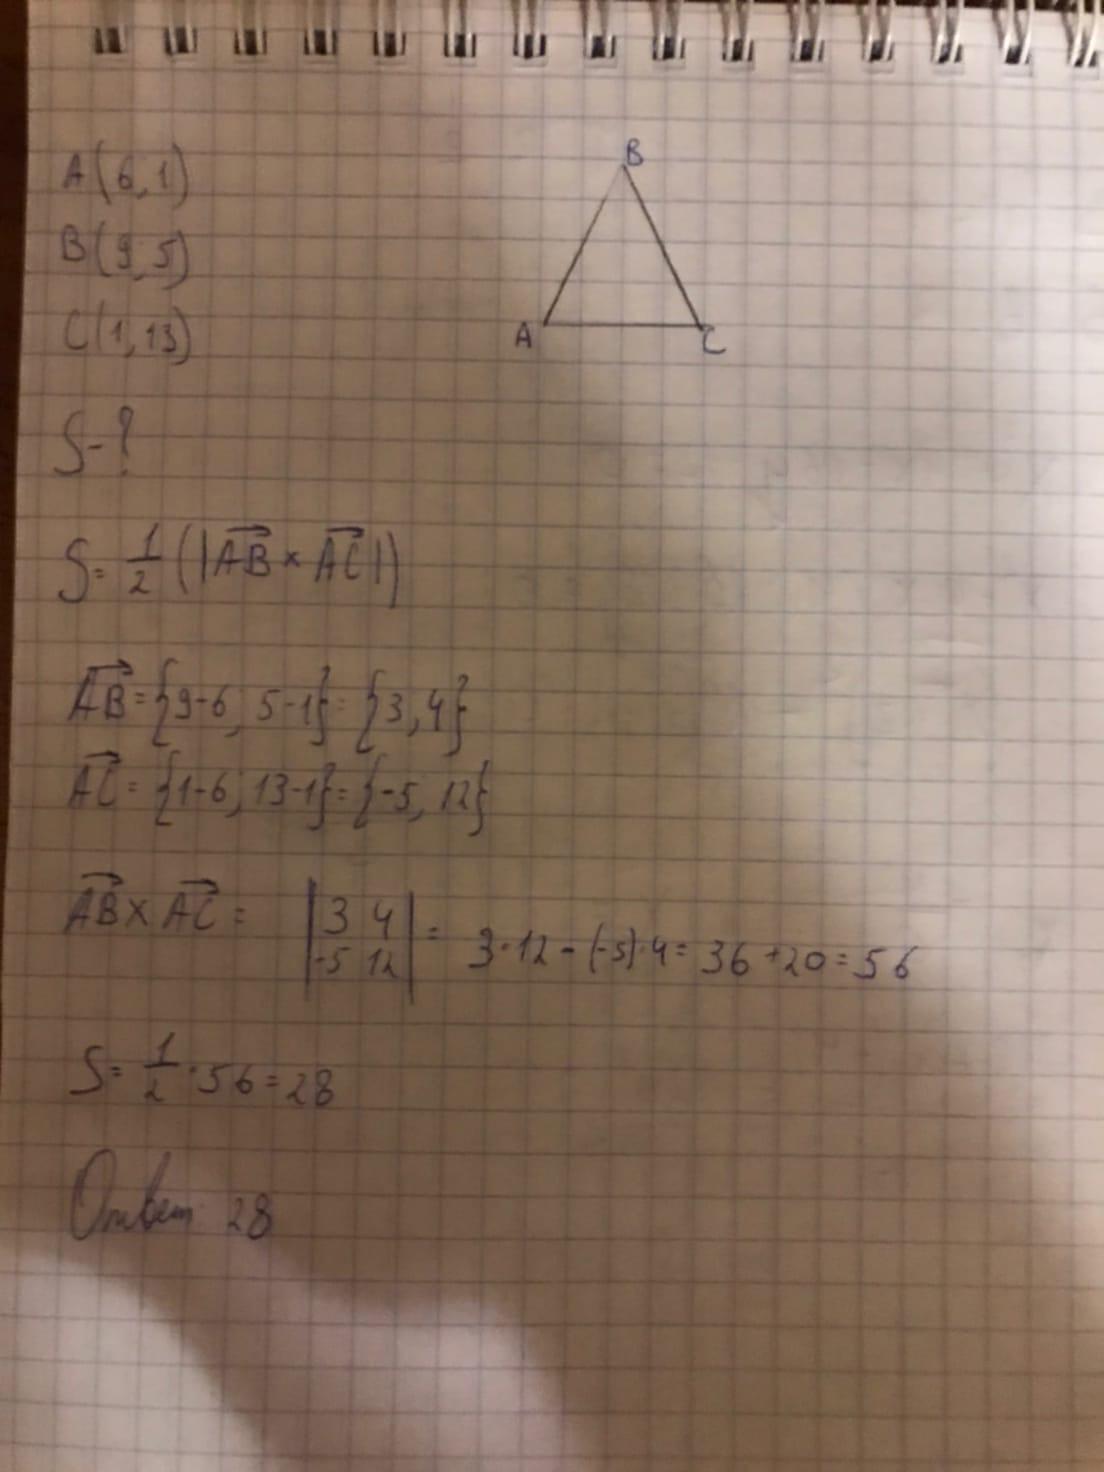 A(6,1)
B(9,5)
C(1,13)
B
A
C
S-?
S= 1/2 (|AB × AC|)
AB = {9-6, 5-1} = {3,4}
AC = {1-6, 13-1} = {-5, 12}
AB × AC = |3 4
-5 12| = 3·12 - (-5)·4 = 36+20=56
S= 1/2 ·56=28
Ответ: 28